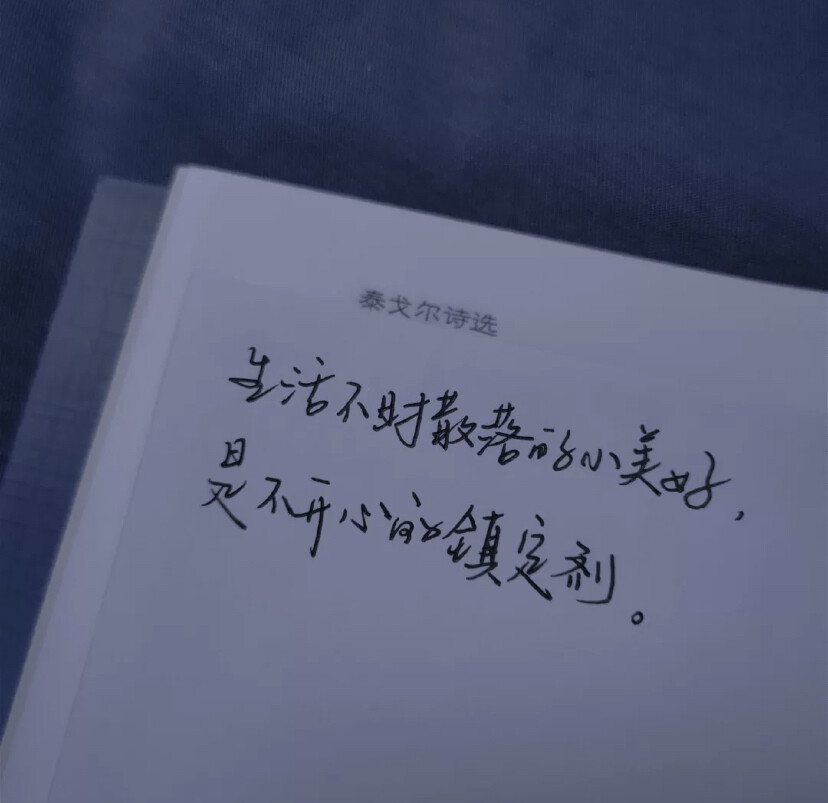 泰戈尔诗选
生活不时散落的小美好，
是不开心的镇定剂。